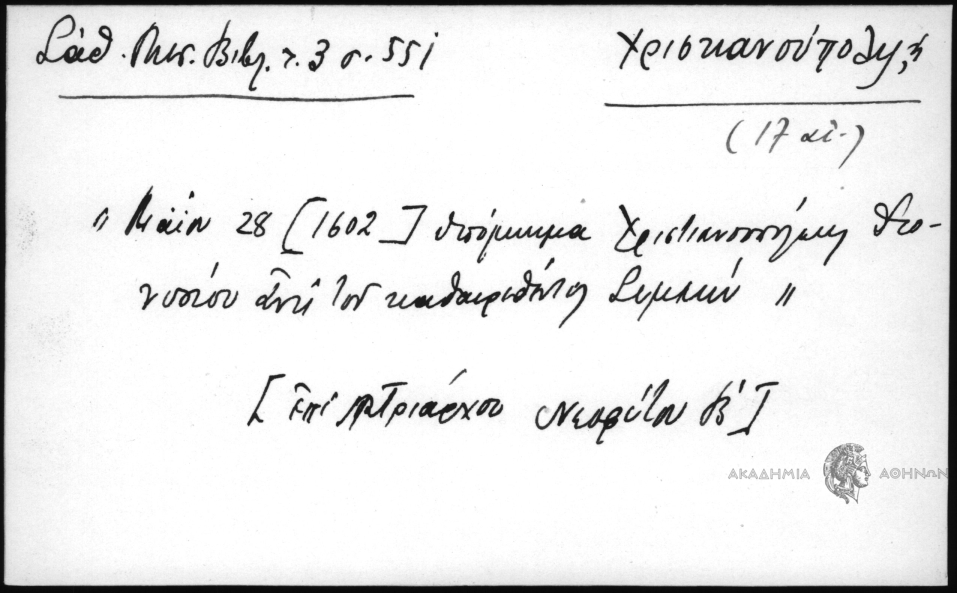 Σάθ. Μεσ. Βιβλ. τ. 3 σ. 551
Χριστιανούπολις, ἡ
(17 αἰ.)
" Μαΐου 28 [1602] ὑπόμνημα Χριστιανουπόλεως Διο-
νυσίου ἀντὶ τοῦ καθαιρεθέντος "
[ἐπὶ πατριάρχου Νεοφύτου Β']
ΑΚΑΔΗΜΙΑ ΑΘΗΝΩΝ